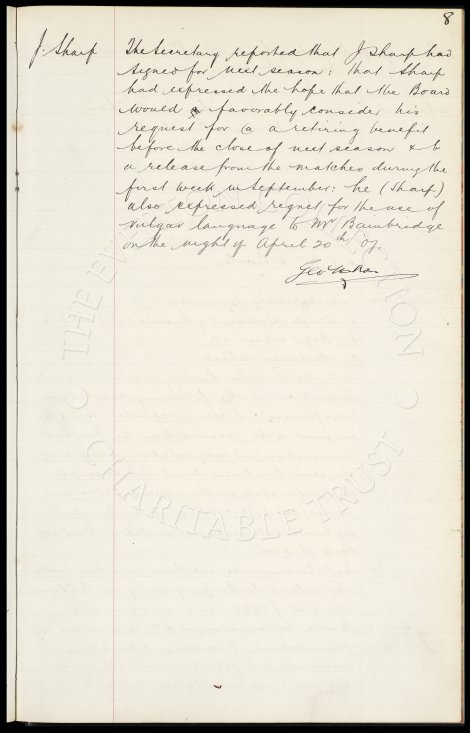 8
J. Sharp
The Secretary reported that J Sharp had
signed for next season: that Sharp
had expressed the hope that the Board
would favorably consider his
request for (a a retiring benefit
before the close of next season & b
a release from the matches during the
first week in September: he (Sharp)
also expressed regret for the use of
vulgar language to Mr Bainbridge
on the night of April 20th 07.
Geo
THE EVERTON COLLECTION
CHARITABLE TRUST